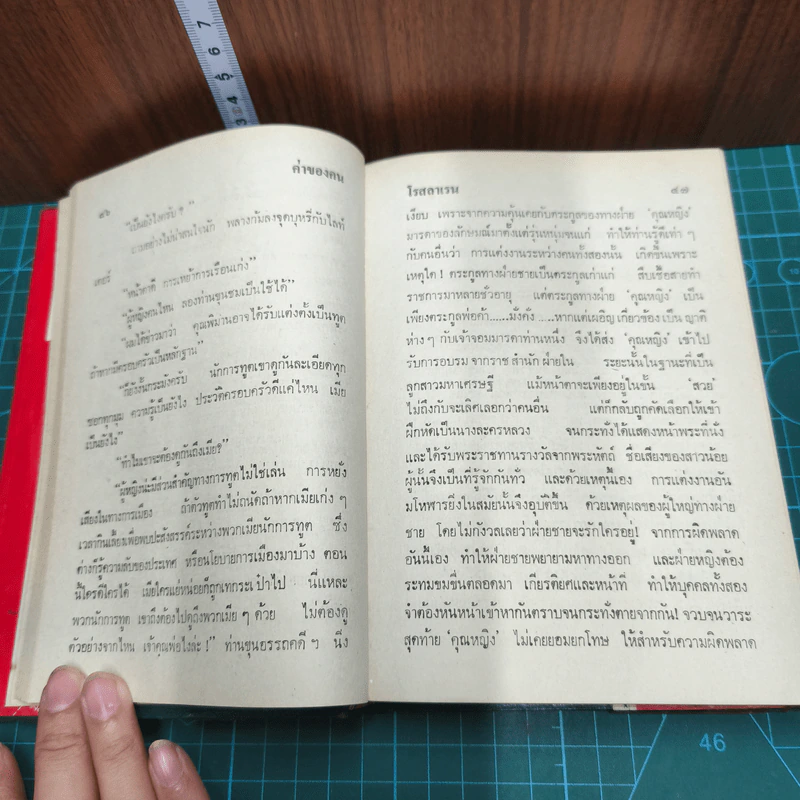 7
6
5
4
3
ค่าของคน
๔๖
"เป็นยังไงครับ ?"
ถามอย่างไม่น่าสนใจนัก พลางก้มลงจุดบุหรี่กับไลท์
เตอร์
"หน้าตาดี การเหย้าการเรือนเก่ง"
"ผู้หญิงคนไหน ลองท่านขุนชมเป็นใช้ได้"
"ผมได้ข่าวมาว่า คุณพิมานอาจได้รับแต่งตั้งเป็นทูต
ถ้าหากมีครอบครัวเป็นหลักฐาน"
"ก็ยังงั้นกระมังครับ นักการทูตเขาดูกันละเอียดทุก
ซอกทุกมุม ความรู้เป็นยังไง ประวัติครอบครัวดีแค่ไหน เมีย
เป็นยังไง"
"ทำไมเราจะต้องดูกันถึงเมีย?"
"ผู้หญิงน่ะมีส่วนสำคัญทางการทูตไม่ใช่เล่น การหยั่ง
เสียงในทางการเมือง ถ้าตัวทูตทำไม่ถนัดล่ะหากเมียเก่ง ๆ
เวลากินเลี้ยงเพื่อพบปะสังสรรค์ระหว่างพวกเมียนักการทูต ซึ่ง
ต่างก็รู้ความลับของประเทศ หรือนโยบายการเมืองมาบ้าง ตอน
นี้ใครดีใครได้ เมียใครแย่หน่อยก็ถูกเทกระเป๋าไป นี่แหละ
พวกนักการทูต เขาถึงต้องไปดูถึงพวกเมีย ๆ ด้วย ไม่ต้องดู
ตัวอย่างจากไหน เจ้าคุณพ่อไงล่ะ !" ท่านขุนอรรถคดี ฯ นิ่ง
โรสลาเรน
๔๗
เงียบ เพราะจากความคุ้นเคยกับตระกูลของทางฝ่าย 'คุณหญิง'
มารดาของลักษณ์มาตั้งแต่รุ่นหนุ่มจนแก่ ทำให้ท่านรู้ดีเท่า ๆ
กับคนอื่นว่า การแต่งงานระหว่างคนทั้งสองนั้น เกิดขึ้นเพราะ
เหตุใด ! ตระกูลทางฝ่ายชายเป็นตระกูลเก่าแก่ สืบเชื้อสายทำ
ราชการมาหลายชั่วอายุ แต่ตระกูลทางฝ่าย 'คุณหญิง' เป็น
เพียงตระกูลพ่อค้า.....มั่งคั่ง .....หากแต่เผอิญเกี่ยวข้องเป็น ญาติ
ห่าง ๆ กับเจ้าจอมมารดาท่านหนึ่ง จึงได้ส่ง 'คุณหญิง' เข้าไป
รับการอบรม จากราช สำนัก ฝ่ายใน ระยะนั้นในฐานะที่เป็น
ลูกสาวมหาเศรษฐี แม้หน้าตาจะเพียงอยู่ในขั้น 'สวย'
ไม่ถึงกับจะเลิศเลอกว่าคนอื่น แต่ก็กลับถูกคัดเลือกให้เข้า
ฝึกหัดเป็นนางละครหลวง จนกระทั่งได้แสดงหน้าพระที่นั่ง
และได้รับพระราชทานรางวัลจากพระหัตถ์ ชื่อเสียงของสาวน้อย
ผู้นั้นจึงเป็นที่รู้จักกันทั่ว และด้วยเหตุนั้นเอง การแต่งงานอัน
มโหฬารยิ่งในสมัยนั้นจึงอุบัติขึ้น ด้วยเหตุผลของผู้ใหญ่ทางฝ่าย
ชาย โดยไม่กังวลเลยว่าฝ่ายชายจะรักใครอยู่! จากการผิดพลาด
อันนี้เอง ทำให้ฝ่ายชายพยายามหาทางออก และฝ่ายหญิงต้อง
ระทมขมขื่นตลอดมา เกียรติยศและหน้าที่ ทำให้บุคคลทั้งสอง
จำต้องหันหน้าเข้าหากันตราบจนกระทั่งตายจากกัน! จวบจนวาระ
สุดท้าย 'คุณหญิง' ไม่เคยยอมยกโทษ ให้สำหรับความผิดพลาด
46